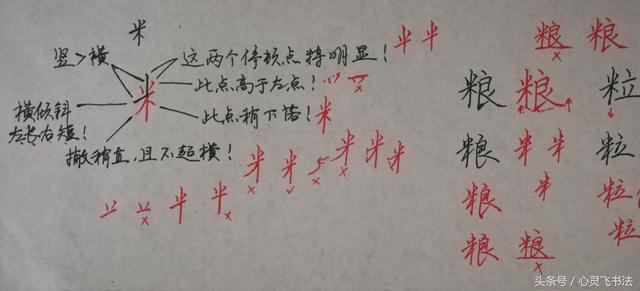 米
竖>横
这两个停顿点特明显!
此点高于左点!
米
横倾斜
左长右短!
此点稍下落
米
撇稍直,且不超横!
米 米 米 米 米
粮 粮
粮 粮 粒
粮 米 米 粒
粮 米 粒
粮 粮 粒
头条号 / 心灵飞书法